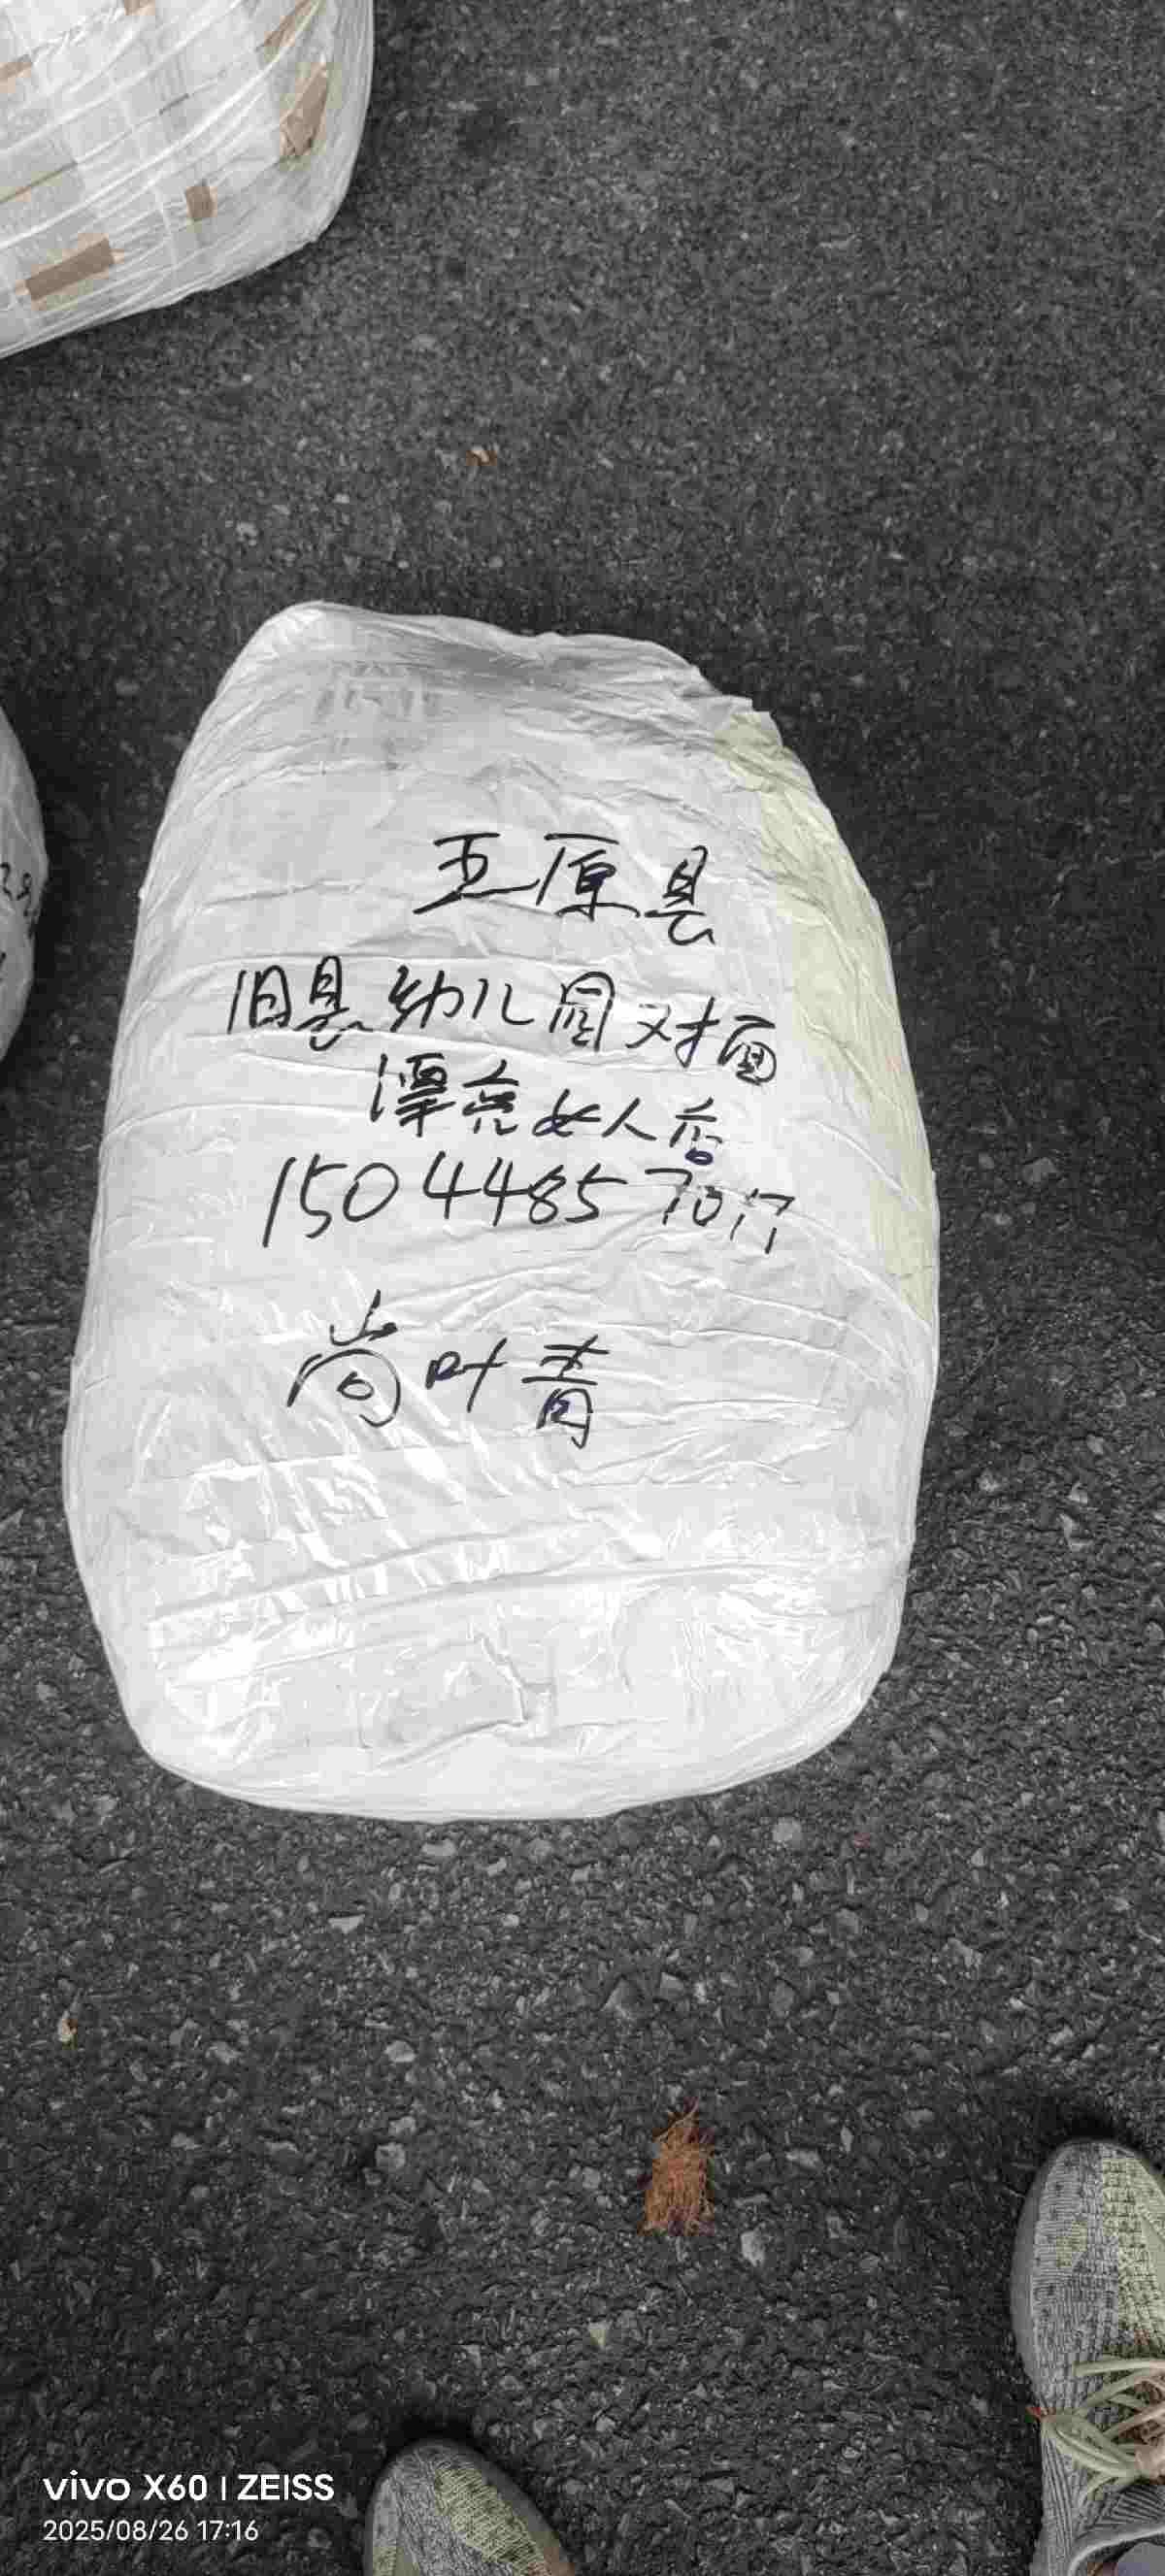 五原县
旧县幼儿园对面
漂亮女人店
15044857017
尚叶青
vivo X60 | ZEISS
2025/08/26 17:16